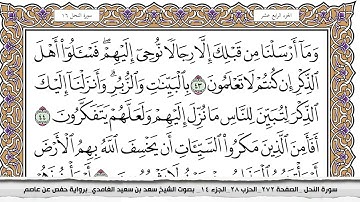 الجزء الرابع عشر
سورة النحل ١٦
وَمَا أَرْسَلْنَا مِن قَبْلِكَ إِلَّا رِجَالًا نُّوحِي إِلَيْهِمْ ۚ فَسْـَٔلُوا۟ أَهْلَ
ٱلذِّكْرِ إِن كُنتُمْ لَا تَعْلَمُونَ ٤٣ بِٱلْبَيِّنَـٰتِ وَٱلزُّبُرِ ۗ وَأَنزَلْنَآ إِلَيْكَ
ٱلذِّكْرَ لِتُبَيِّنَ لِلنَّاسِ مَا نُزِّلَ إِلَيْهِمْ وَلَعَلَّهُمْ يَتَفَكَّرُونَ ٤٤
أَفَأَمِنَ ٱلَّذِينَ مَكَرُوا۟ ٱلسَّيِّـَٔاتِ أَن يَخْسِفَ ٱللَّهُ بِهِمُ ٱلْأَرْضَ
سورة النحل _ الصفحة ٢٧٢_ الحزب ٢٨_ الجزء ١٤_ بصوت الشيخ سعد بن سعيد الغامدي _برواية حفص عن عاصم